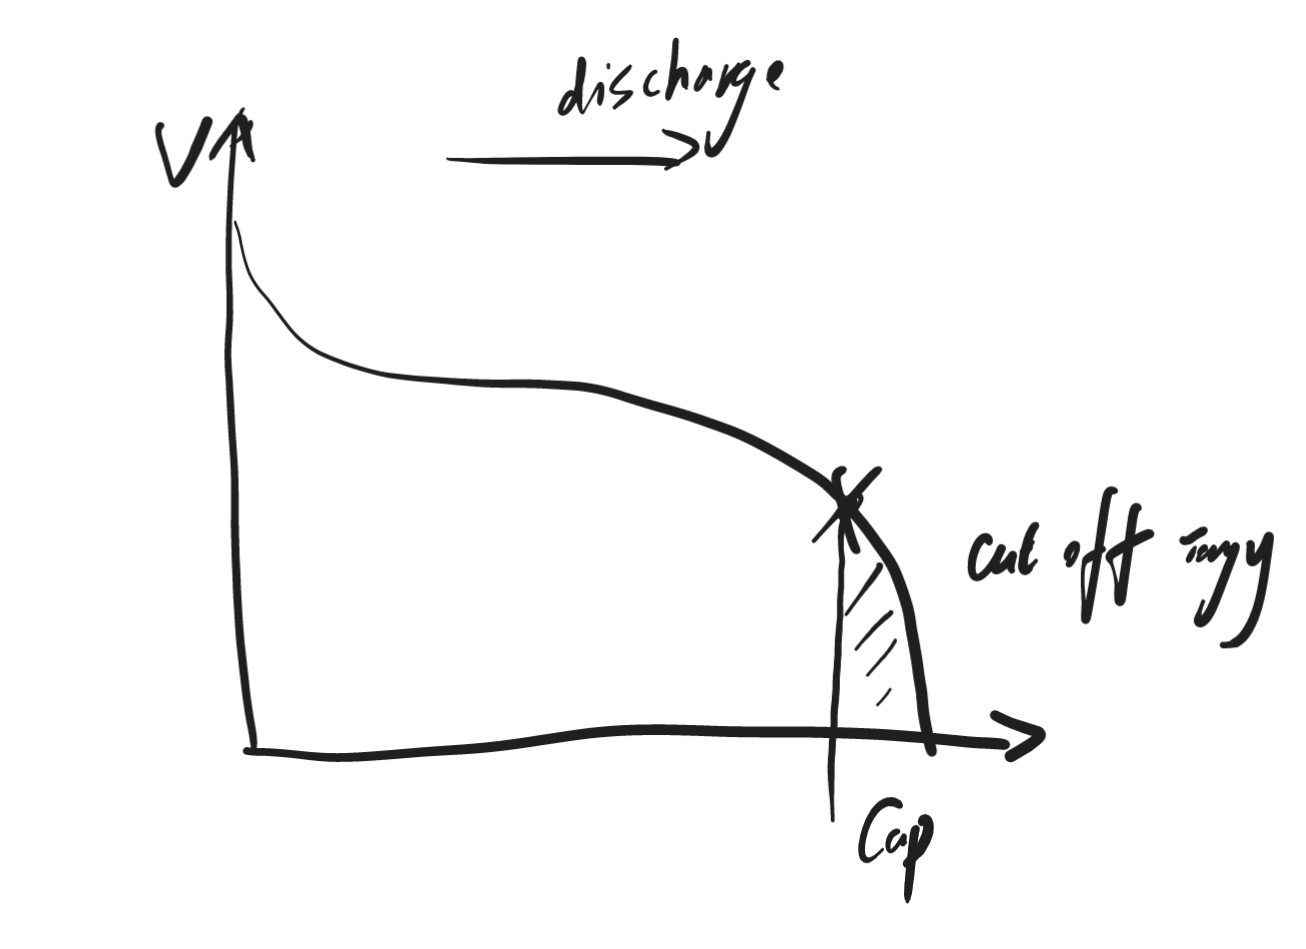 discharge
V
cut off
Cap